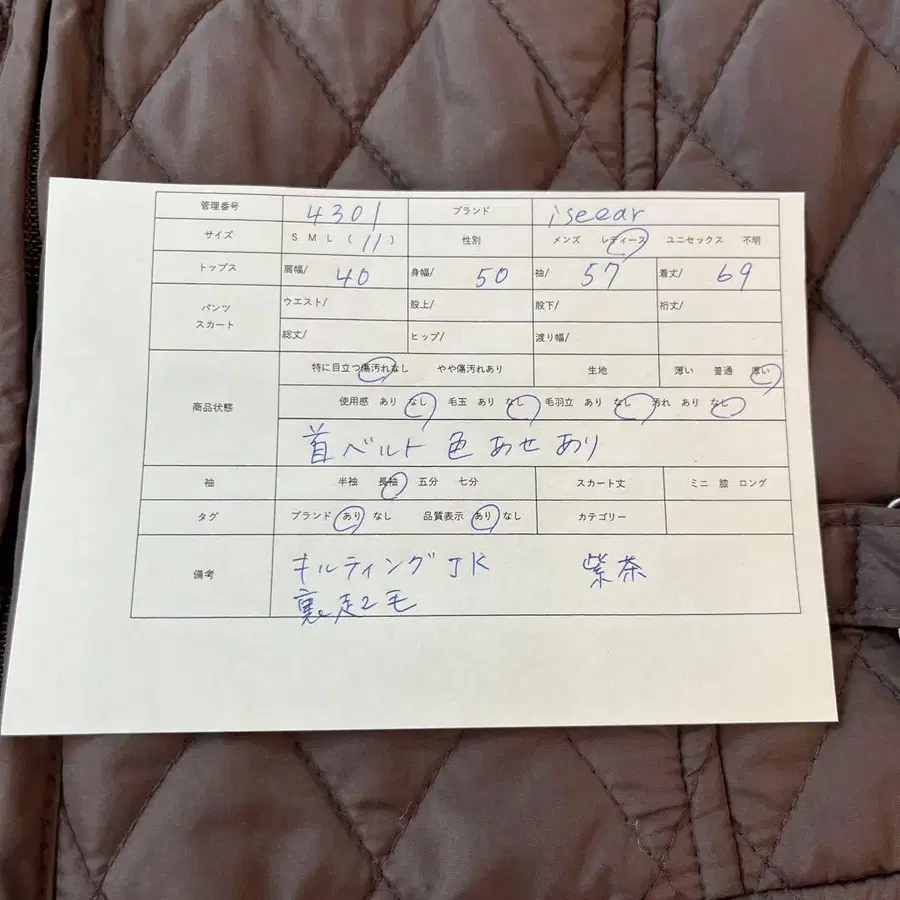 管理番号 4301 ブランド iseear
サイズ S M L ( 11 ) 性別 メンズ レディース ユニセックス 不明
トップス 肩幅/ 40 身幅/ 50 袖/ 57 着丈/ 69
パンツ スカート ウエスト/ 股上/ 股下/ 裄丈/
総丈/ ヒップ/ 渡り幅/
商品状態 特に目立つ傷汚れなし やや傷汚れあり 生地 薄い 普通 厚い
使用感 あり なし 毛玉 あり なし 毛羽立 あり なし 汚れ あり なし
首ベルト 色あせあり
袖 半袖 長袖 五分 七分 スカート丈 ミニ 膝 ロング
タグ ブランド あり なし 品質表示 あり なし カテゴリー
備考 キルティングJK 紫茶
裏起毛